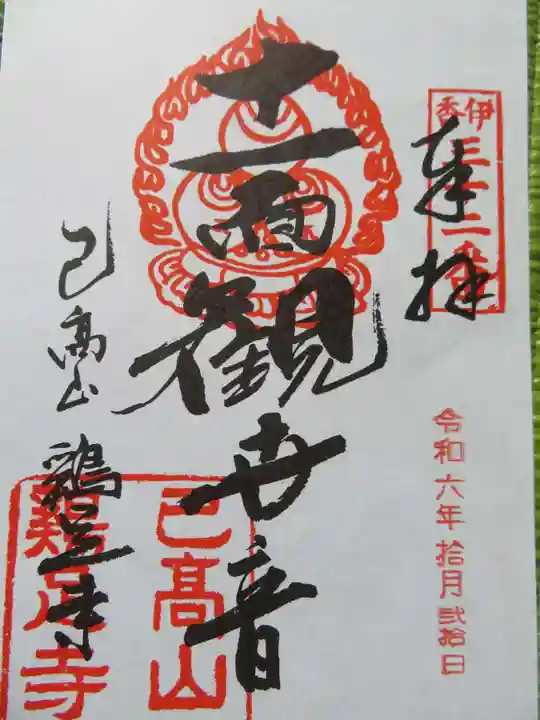 奉拝
伊香三十二番
令和六年拾月弐拾日
十一面観世音
己高山
鶏足寺
己高山
鶏足寺